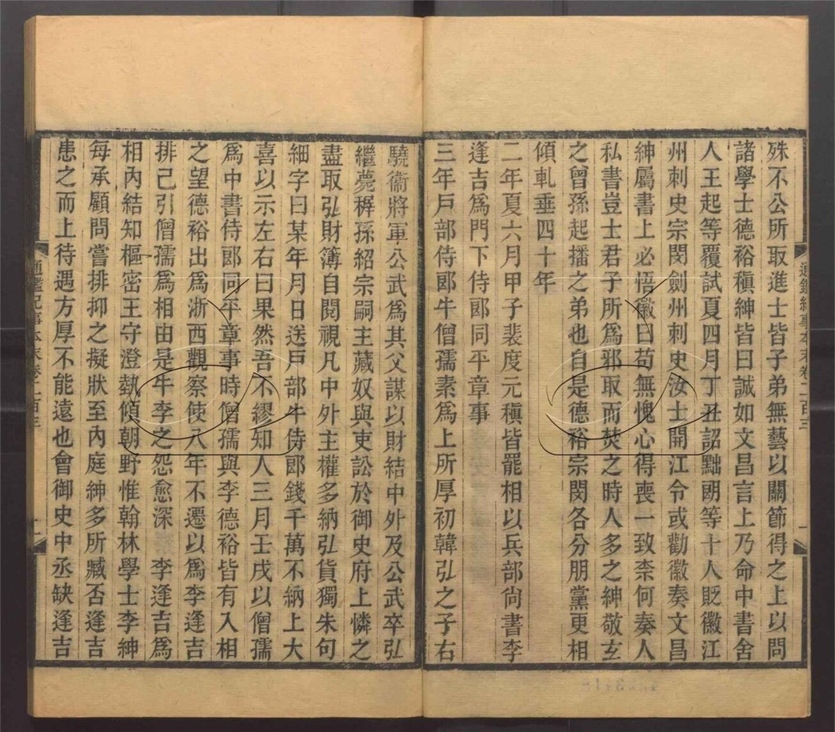 殊不公所取進士皆子弟無藝以關節得之上以問
諸學士德裕稹紳皆曰誠如文昌言上乃命中書舍
人王起等覆試夏四月丁丑詔黜朗等十人貶徽江
州刺史宗閔劍州刺史汝士開江令或勸徽奏文昌
紳屬書上必悟徽曰苟無愧心得喪一致柰何奏人
私書豈士君子所爲邪取而焚之時人多之紳敬玄
之曾孫起播之弟也自是德裕宗閔各分朋黨更相
傾軋垂四十年
二年夏六月甲子裴度元稹皆罷相以兵部尚書李
逢吉爲門下侍郎同平章事
三年戶部侍郎牛僧孺素爲上所厚初韓弘之子右
驍衞將軍公武爲其父謀以財結中外及公武卒弘
繼薨穉孫紹宗嗣主藏奴與吏訟於御史府上憐之
盡取弘財簿自閱視凡中外主權多納弘貨獨朱句
細字曰某年月日送戶部牛侍郎錢千萬不納上大
喜以示左右曰果然吾不繆知人三月壬戌以僧孺
爲中書侍郎同平章事時僧孺與李德裕皆有入相
之望德裕出爲浙西觀察使八年不遷以爲李逢吉
排己引僧孺爲相由是牛李之怨愈深 李逢吉爲
相內結知樞密王守澄勢傾朝野惟翰林學士李紳
每承顧問嘗排抑之擬狀至內庭紳多所臧否逢吉
患之而上待遇方厚不能遠也會御史中丞缺逢吉
通鑑紀事本末卷二百三